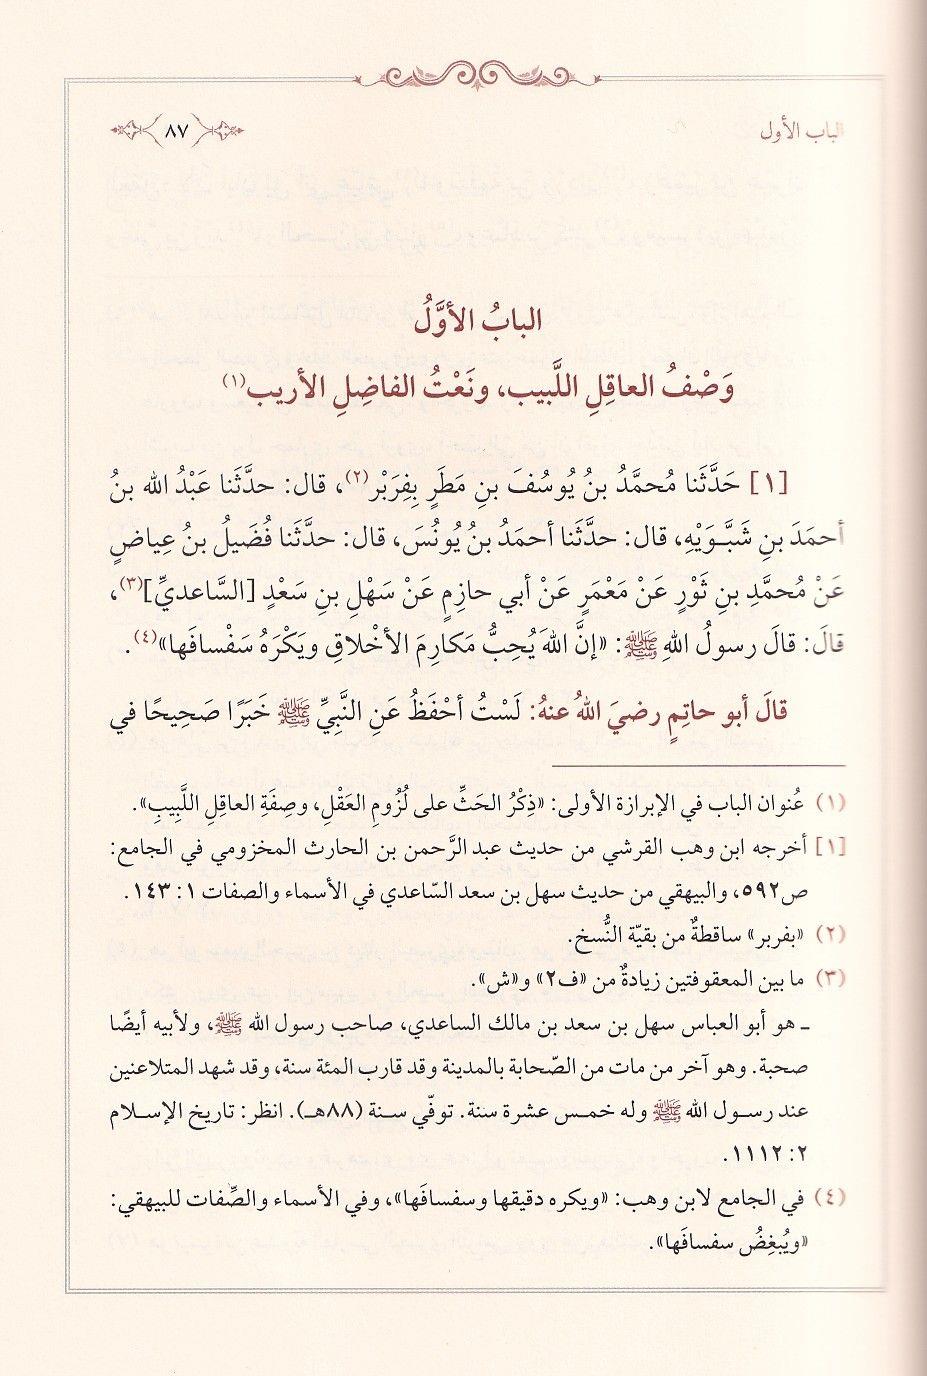 الباب الأول
٨٧
البابُ الأوَّلُ
وَصْفُ العاقِلِ اللَّبيب، ونَعْتُ الفاضِلِ الأريب(١)
[١] حَدَّثَنا مُحمَّدُ بنُ يُوسُفَ بنِ مَطَرٍ بِفِرَبْر(٢)، قال: حدَّثَنا عَبْدُ الله بنُ
أحمَدَ بنِ شَبَّـوَيْهِ، قال: حدَّثَنا أحمَدُ بنُ يُونُسَ، قال: حدَّثَنا فُضَيلُ بنُ عِياضٍ
عَنْ مُحمَّدِ بنِ ثَوْرٍ عَنْ مَعْمَرٍ عَنْ أبي حازِمٍ عَنْ سَهْلِ بنِ سَعْدٍ [السَّاعديِّ](٣)،
قالَ: قالَ رسولُ اللهِ ﷺ: «إنَّ اللهَ يُحِبُّ مَكارِمَ الأخْلاقِ ويَكْرَهُ سَفْسافَها»(٤).
قالَ أبو حاتِمٍ رضيَ اللهُ عنهُ: لَسْتُ أحْفَظُ عَنِ النَّبيِّ ﷺ خَبَرًا صَحِيحًا في
(١) عُنوان الباب في الإبرازة الأولى: «ذِكْرُ الحَثِّ على لُزُومِ العَقْلِ، وصِفَةِ العاقِلِ اللَّبِيبِ».
[١] أخرجه ابن وهب القرشي من حديث عبد الرَّحمن بن الحارث المخزومي في الجامع:
ص٥٩٢، والبيهقي من حديث سهل بن سعد السّاعدي في الأسماء والصفات ١: ١٤٣.
(٢) «بفربر» ساقطةٌ من بقيّة النُّسخ.
(٣) ما بين المعقوفتين زيادةٌ من «ف٢» و«ش».
ـ هو أبو العباس سهل بن سعد بن مالك الساعدي، صاحب رسول الله ﷺ، ولأبيه أيضًا
صحبة. وهو آخر من مات من الصّحابة بالمدينة وقد قارب المئة سنة، وقد شهد المتلاعنين
عند رسـول الله ﷺ وله خمـس عشرة سنة. توفّي سـنة (٨٨هـ). انظر: تاريخ الإسـلام
٢: ١١١٢.
(٤) في الجامع لابن وهب: «ويكره دقيقها وسفسافَها»، وفي الأسماء والصِّفات للبيهقي:
«ويُبغِضُ سفسافَها».